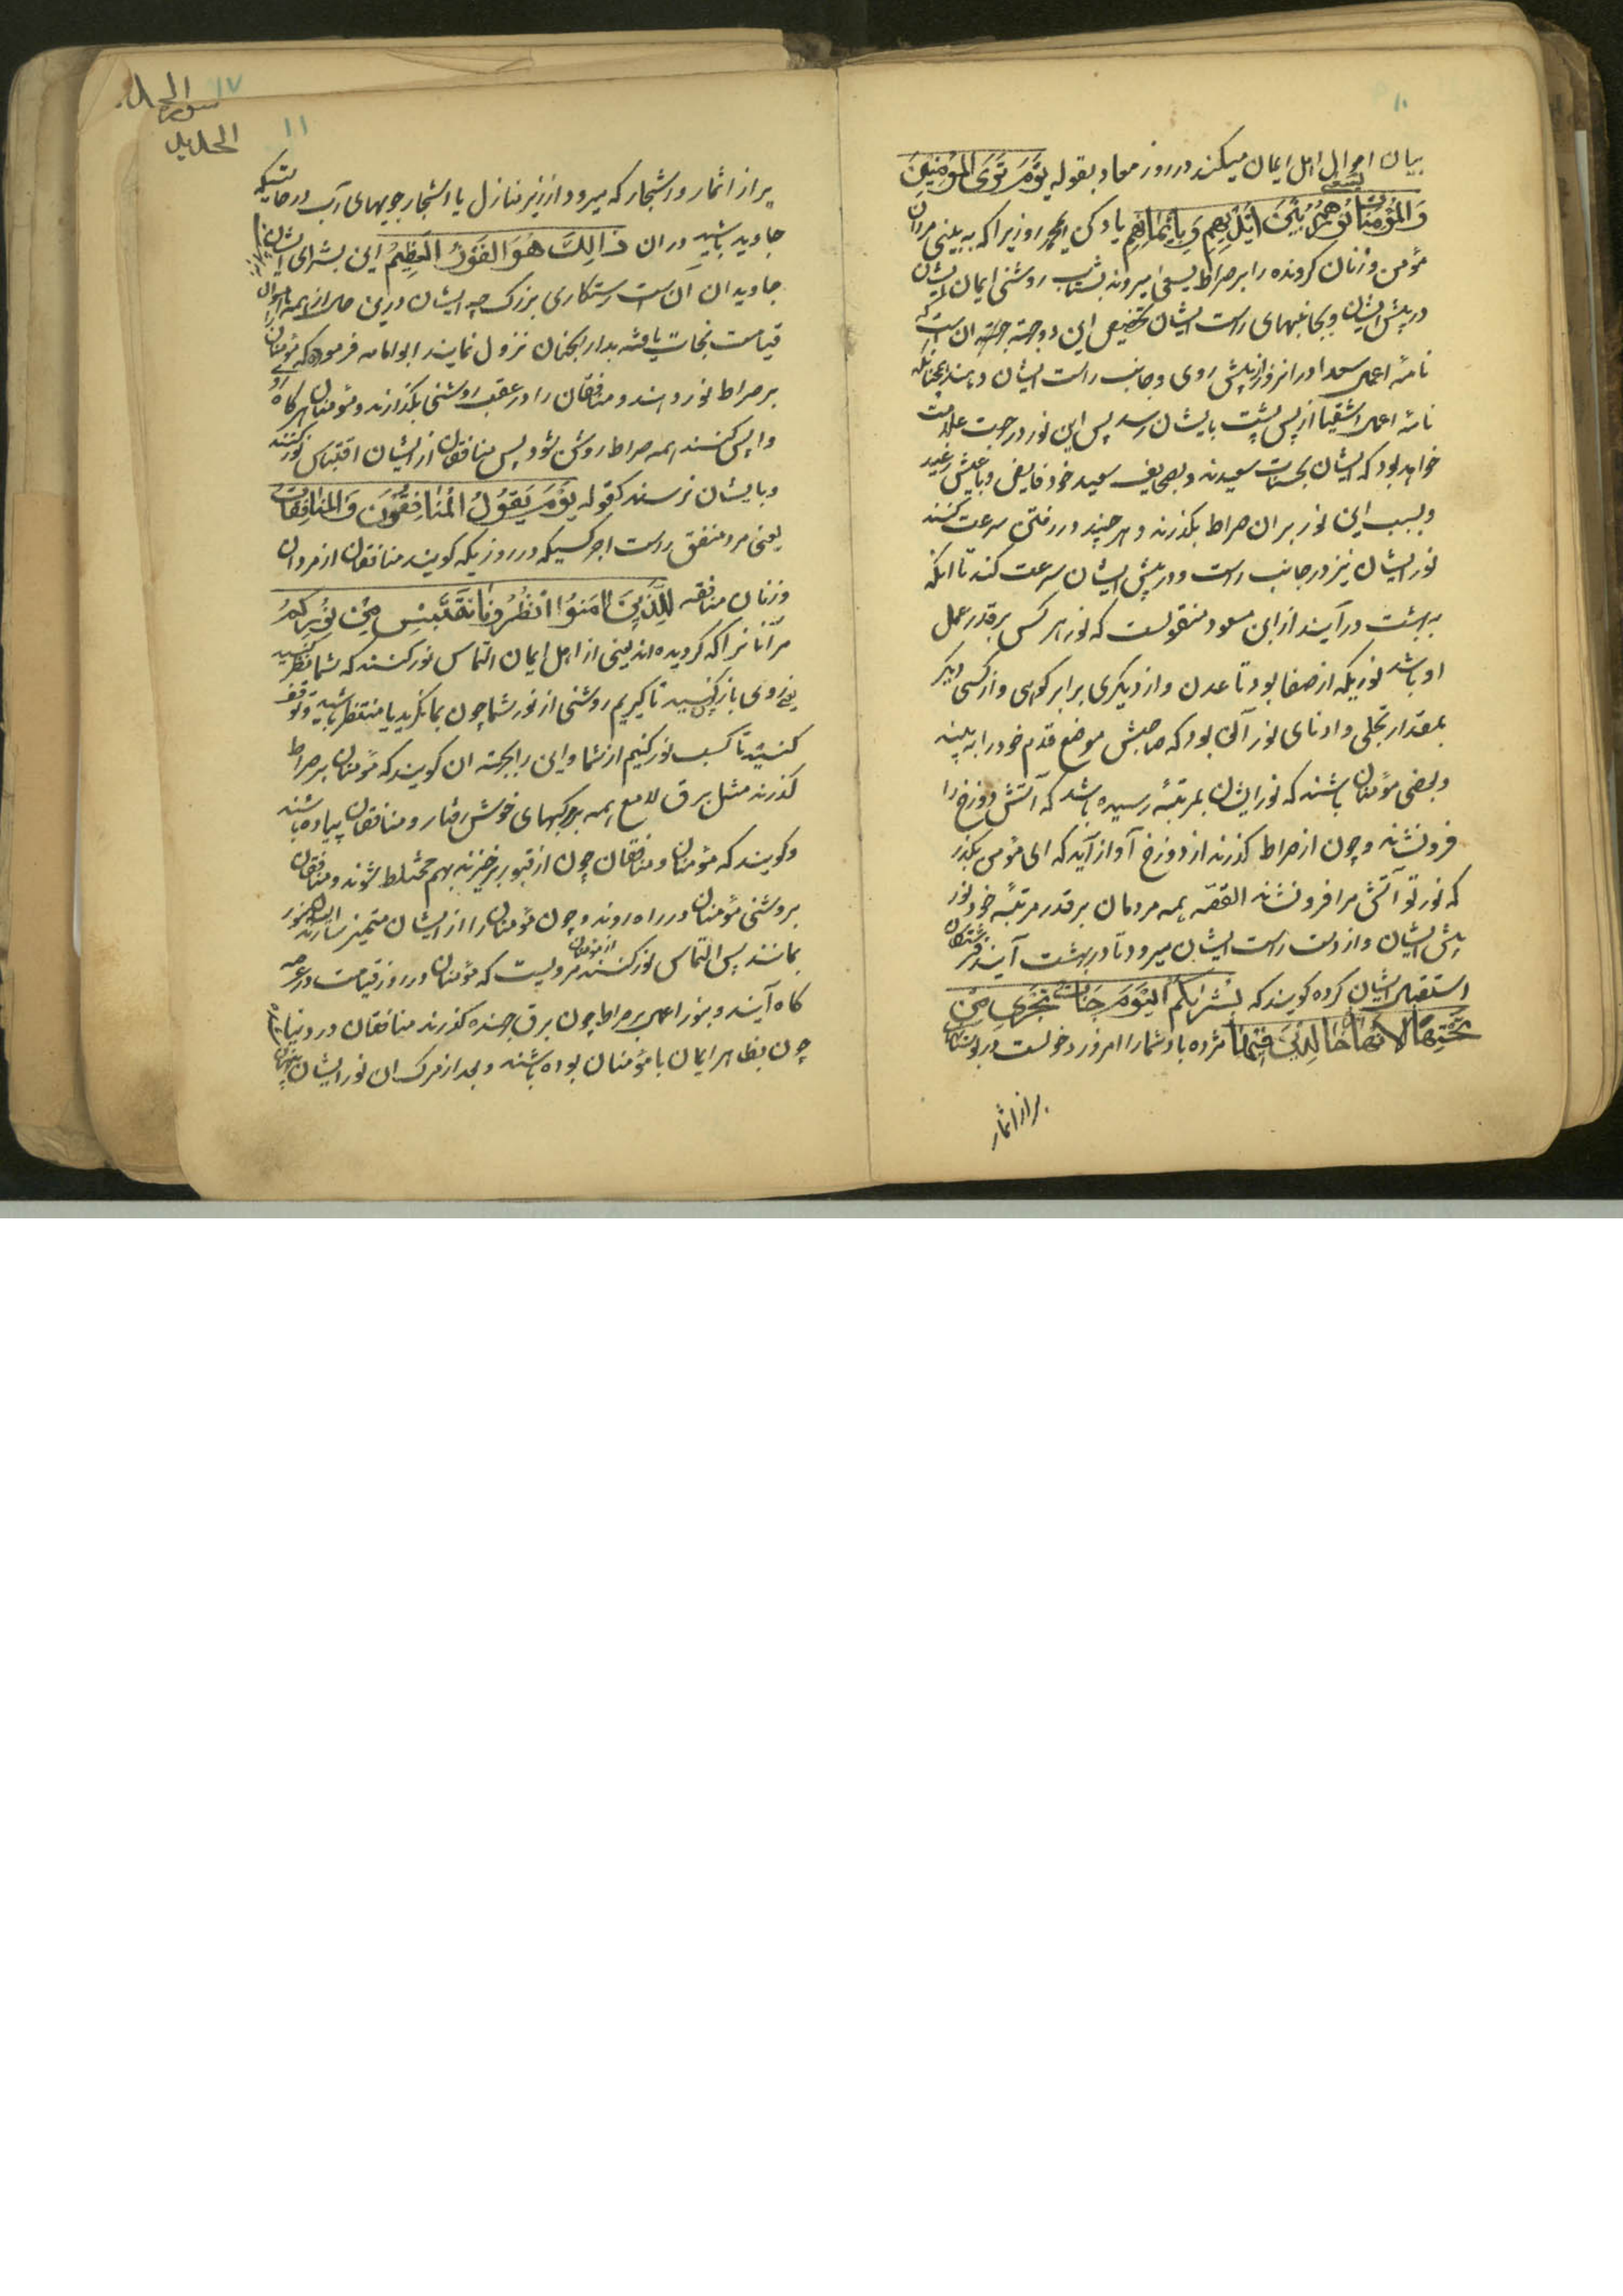 ۱۰
بیان احوال اهل ایمان میکند در روز معاد بقوله یَوْمَ تَرَى المُؤمِنینَ
وَالمُؤمِنَاتِ یسعى نُورُهُمْ بَیْنَ اَیْدِیهِم وَ بِاَیْمَانِهِم یاد کن ای محمد روزیرا که به بینی مردان
مؤمن و زنان کرونده را بر صراط یسعی میرود بشتاب روشنی ایمان ایشان
در پیش ایشان و بجانبهای راست ایشان تخصیص این دو جهة بجهة ان است که
نامهٔ اعمال سعدا در انروز از پیش روی و جانب راست ایشان دهند همچنانکه
نامهٔ اعمال اشقیا از پس پشت بایشان رسد پس این نور در جهت علامت
خواهد بود که ایشان بحسنات سعیدند و بصحایف سعید خود فایض و بعیش رغید
و بسبب این نور بران صراط بگذرند و هر چند در رفتن سرعت کنند
نور ایشان نیز در جانب راست و در پیش ایشان سرعت کند تا انکه
به بهشت در آیند از ابن مسعود منقولست که نور هر کس بر قدر عمل
او باشد نوریکه از صفا بود تا عدن و از دیکری برابر کوهی و از کسی دیکر
بمقدار نخلی و ادنای نور آن بود که صاحبش موضع قدم خود را به بیند
و بعضی مؤمنان باشند که نور ایشان بمرتبهٔ رسیده باشد که آتش دوزخ را
فرونشاند و چون از صراط کذرند از دوزخ آواز آید که ای مؤمن بکذر
که نور تو آتش مرا فرونشاند القصّه همه مردمان بر قدر مرتبهٔ خود نور
پیش ایشان و از دست راست ایشان میرود تا در بهشت آیند فرشتکان
استقبال ایشان کرده کویند که بُشْرَاىکُمُ الیَوْمَ جَنَّاتٌ تَجْرِی مِنْ
تَحْتِهَا الاَنْهَارُ خَالِدِینَ فِیهَا مژده باد شما را امروز دخولست در بوستانهای
پر از اثمار
سورة الحدید
الحدید
۱۷
۱۱
پر از اثمار و اشجار که میرود از زیر منازل یا اشجار جویهای آب در حالتیکه
جاوید باشید دران ذَالِکَ هُوَ الفَوْزُ العَظِیمُ این بشرای ایشان
جاویدان آن است رستکاری بزرک چه ایشان درین حال از همه اهوال
قیامت نجات یافته بدار الجنان نزول نمایند ابوامامه فرموده که مؤمنان
بر صراط نور دهند و منافقان را در عقب روشنی بگذارند و مؤمنان هر کاه رو
واپس کنند همه صراط روشن شود پس منافقان از ایشان اقتباس نور کنند
و بایشان نرسند کقوله یَوْمَ یَقُولُ المُنَافِقُونَ وَالمُنَافِقَاتُ
یعنی مر منفق راست اجر کسیکه در روزیکه کویند منافقان از مردان
و زنان منافقه لِلَّذِینَ اٰمَنُوا انْظُرُونَا نَقْتَبِسْ مِنْ نُورِکُمْ
مر آنانرا که کرویده اند یعنی از اهل ایمان التماس نور کنند که شما نظر کنید
یعنی روی باز پس کنید تا کیریم روشنی از نور شما چون بما نکرید یا منتظر باشید و توقف
کنید تا کسب نور کنیم از شما و این را بجهته ان کویند که مؤمنان بر صراط
کذرند مثل برق لامع همه بر مرکبهای خوش رفتار و منافقان پیاده باشند
و کویند که مؤمنان و منافقان چون از قبور برخیزند بهم مختلط شوند و منافقان
بروشنی مؤمنان در راه روند و چون مؤمنان را از ایشان متمیز سازند
بمانند پس التماس نور کنند از مؤمنان مرویست که مؤمنان در روز قیامت در عرصه
کاه آیند و بنور اعمال بر صراط چون برق جهنده کذرند منافقان در دنیا
چون بظاهر ایمان با مؤمنان بوده باشند و بعد از مرک ان نور ایشان